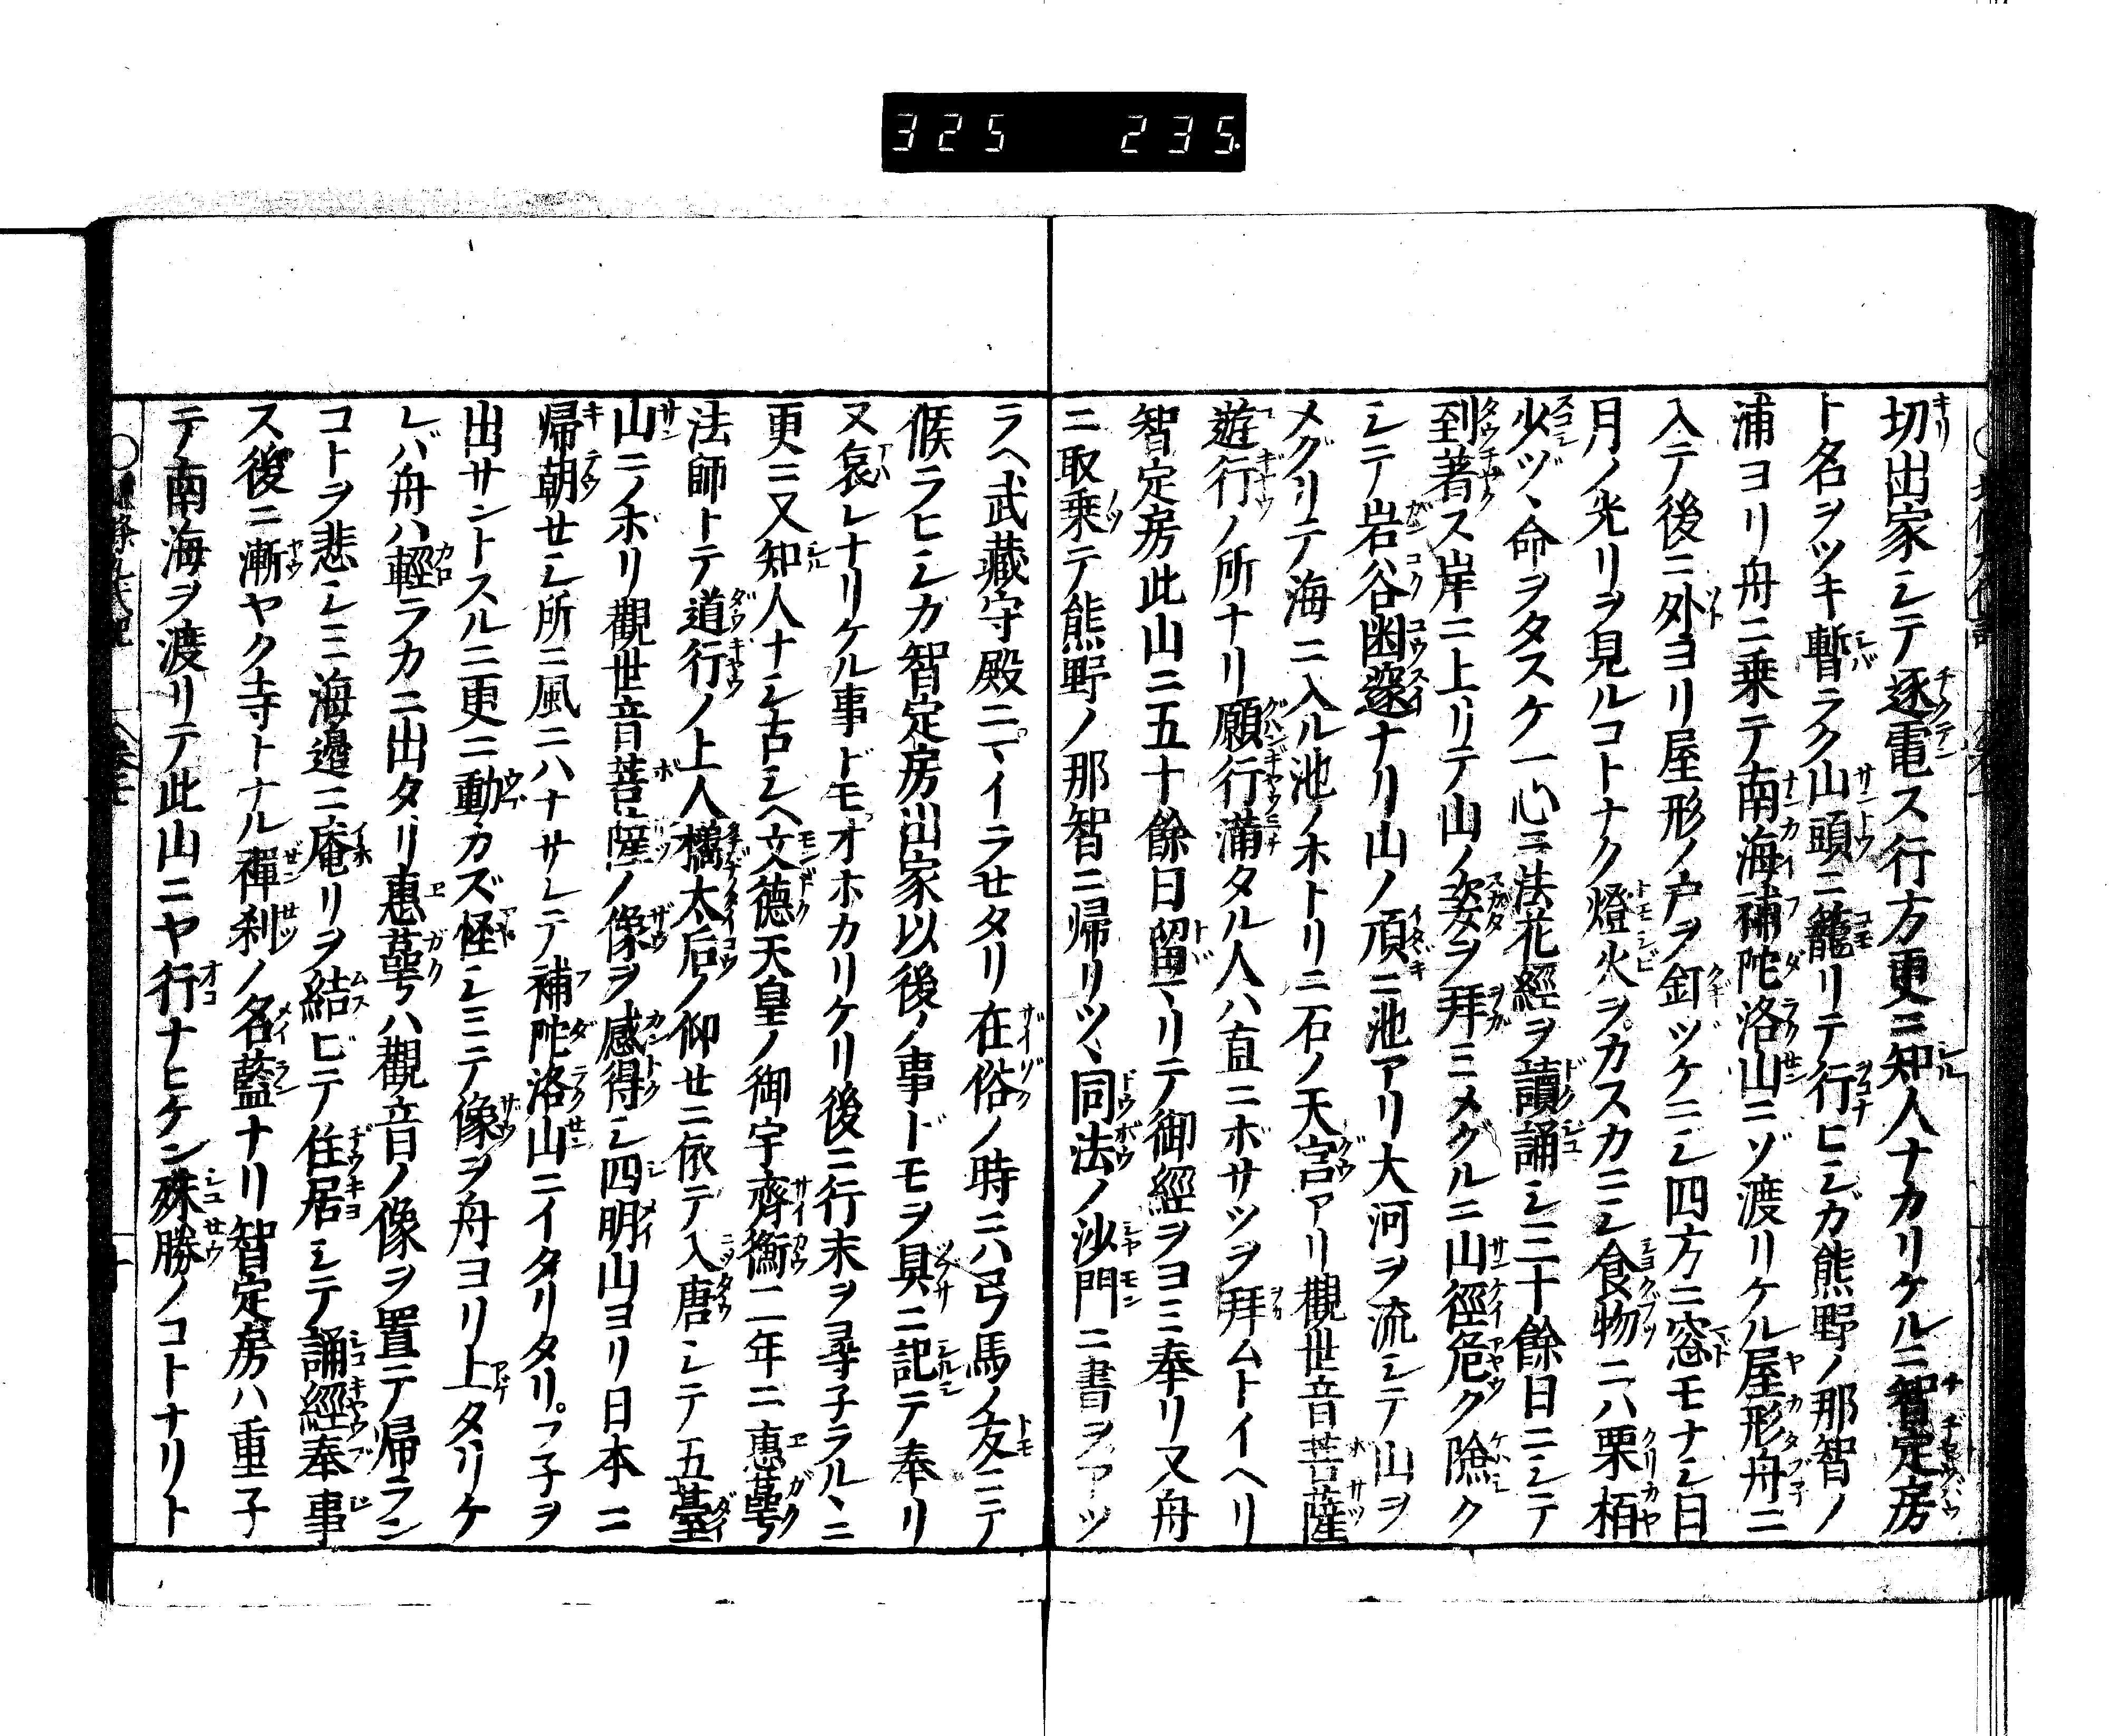 325 235
切出家シテ逐電ス行方更ニ知人ナカリケルニ智定房
ト名ヲツキ暫ラク山頭ニ籠リテ行ヒシガ熊野ノ那智ノ
浦ヨリ舟ニ乗テ南海補陀洛山ニゾ渡リケル屋形舟ニ
入テ後ニ外ヨリ屋形ノ戸ヲ釘ツケニシ四方ニ窓モナシ日
月ノ光リヲ見ルコトナク燈火ヲカスカニシ食物ニハ栗栢
少ヅヽ命ヲタスケ一心ニ法花經ヲ讀誦シ三十餘日ニシテ
到著ス岸ニ上リテ山ノ姿ヲ拜ミメグルニ山徑危ク險ク
シテ岩谷幽邃ナリ山ノ頂ニ池アリ大河ヲ流シテ山ヲ
メグリテ海ニ入ル池ノホトリニ石ノ天宮アリ觀世音菩薩
遊行ノ所ナリ願行滿タル人ハ直ニボサツヲ拜ムトイヘリ
智定房此山ニ五十餘日留マリテ御經ヲヨミ奉リ又舟
ニ取乗テ熊野ノ那智ニ帰リツヽ同法ノ沙門ニ書ヲアツ
ラヘ武藏守殿ニマイラセタリ在俗ノ時ニハ弓馬ノ友ニテ
候ラヒシガ智定房出家以後ノ事ドモヲ具ニ記テ奉リ
又哀レナリケル事ドモオホカリケリ後ニ行末ヲ尋子ラルヽニ
更ニ又知人ナシ古シヘ文徳天皇ノ御宇齊衡二年ニ惠萼
法師トテ道行ノ上人橘太后ノ仰セニ依テ入唐シテ五臺
山ニノボリ觀世音菩薩ノ像ヲ感得シ四明山ヨリ日本ニ
帰朝セシ所ニ風ニハナサレテ補陀洛山ニイタリタリフ子ヲ
出サントスルニ更ニ動カズ怪シミテ像ヲ舟ヨリ上タリケ
レバ舟ハ輕ラカニ出タリ惠萼ハ觀音ノ像ヲ置テ帰ラン
コトヲ悲シミ海邊ニ庵リヲ結ビテ住居シテ誦經奉事
ス後ニ漸ヤク寺トナル禪刹ノ名藍ナリ智定房ハ重子
テ南海ヲ渡リテ此山ニヤ行ナヒケン殊勝ノコトナリト